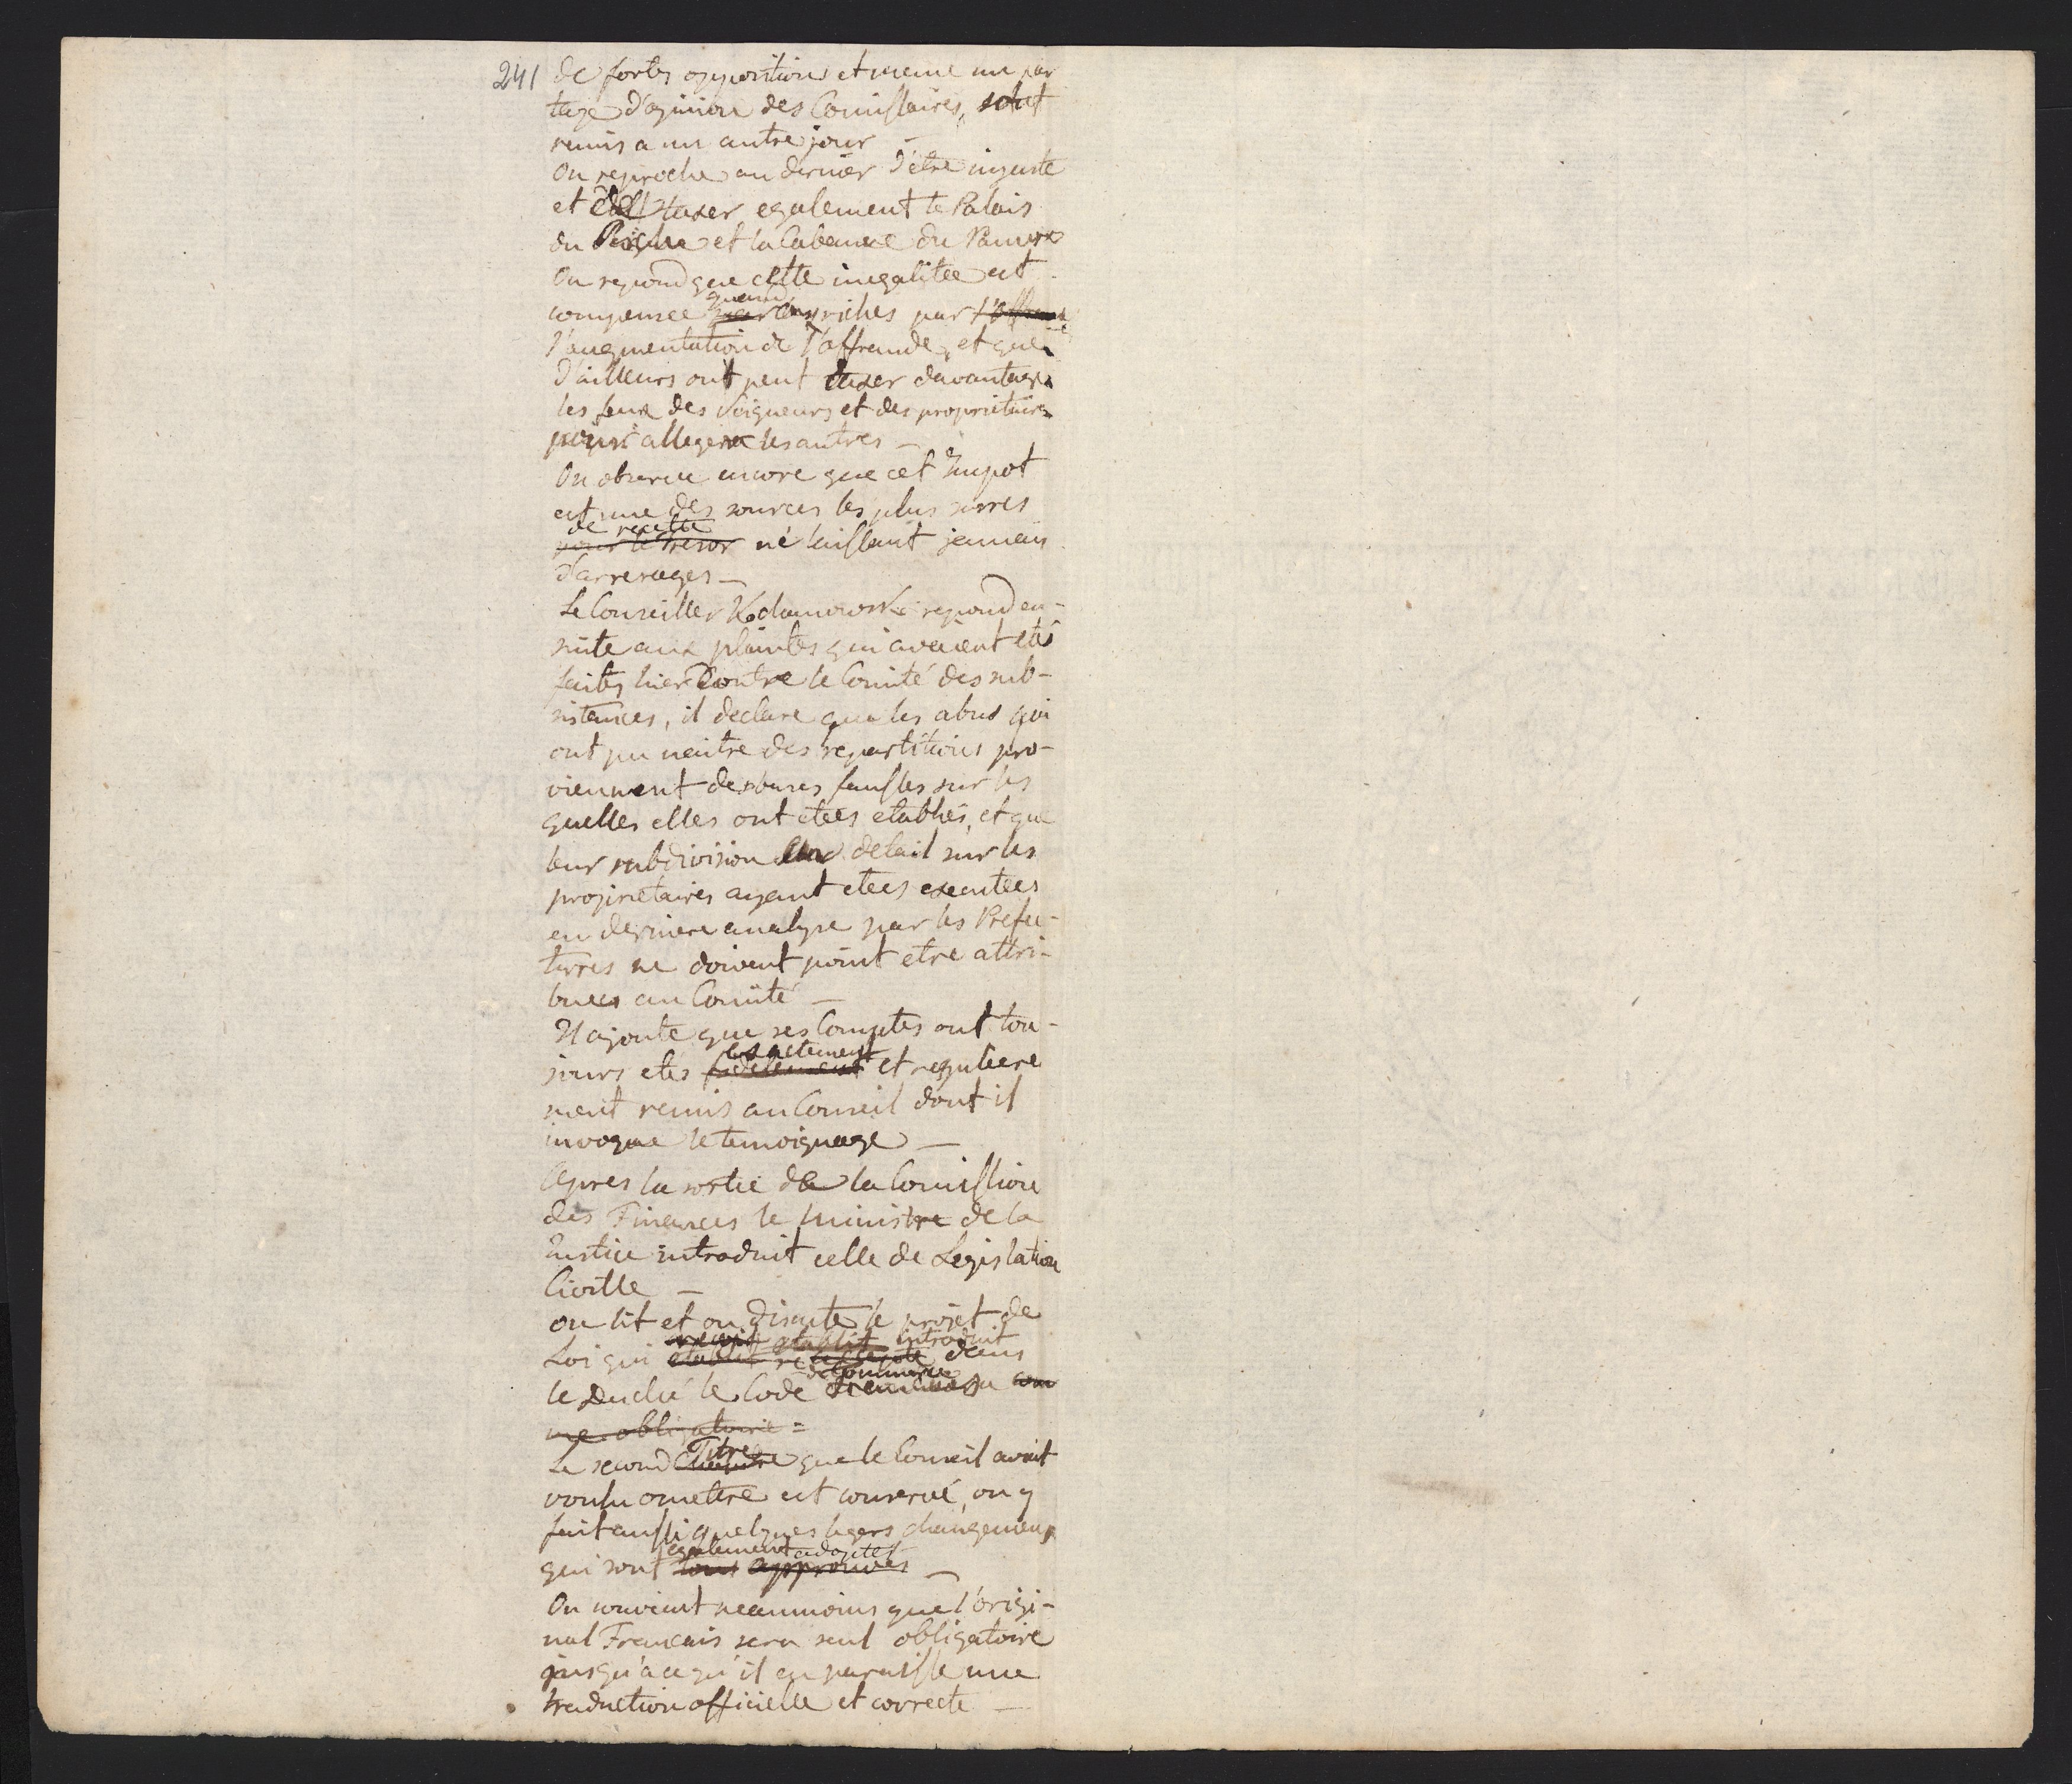 241
de fortes oppositions et meme un par
tage d'opinion des Comissaires, sont
remis a un autre jour —
On reproche au dernier d'etre injuste
et de taxer egalement le Palais
du Riche et la Cabanne du Pauvre
On repond que cette inegalitée est
compensée quand aux riches par l'offrande
l'augmentation de l'offrande, et que
d'ailleurs ont peut taxer davantage
les feux des Seigneurs et des proprietaires
pour alleger les autres —
On observe encore que cet Impot
est une des sources les plus surres
de recette
pour le tresor ne laissant jamais
d'arrerages —
Le Conseiller Kochanowski repond en-
suite aux plaintes qui avaient etés
faites hier Contre le Comité des sub-
sistances, il declare que les abus qui
ont pu naitre des repartitions pro-
viennent des bases fausses sur les
quelles elles ont etées etablies, et que
leur subdivision en detail sur les
proprietaires ayant etees executees
en derniere analyse par les Prefec-
turres ne doivent point etre attri-
buees au Comité —
Il ajoute que ses Comptes ont tou-
exactement
jours etes fidelement et reguliere
ment remis au Conseil dont il
invoque le temoignage —
Apres la sortie de la Comission
des Finances le Ministre de la
Justice introduit celle de Legislation
Civille —
on lit et on discute le projet de
etablit introduit
Loi qui etablit dans
de Commerce
le Duché le Code com
me obligatoire =
Titre
Le second Chapitre que le Conseil avait
voulu omettre est conservé, on y
fait aussi quelques legers changemens
egalement adoptés
qui sont tous approuvés —
On convient neanmoins que l'origi-
nal Francais sera seul obligatoire
jusqu'a ce qu'il en paraisse une
traduction officielle et correcte —